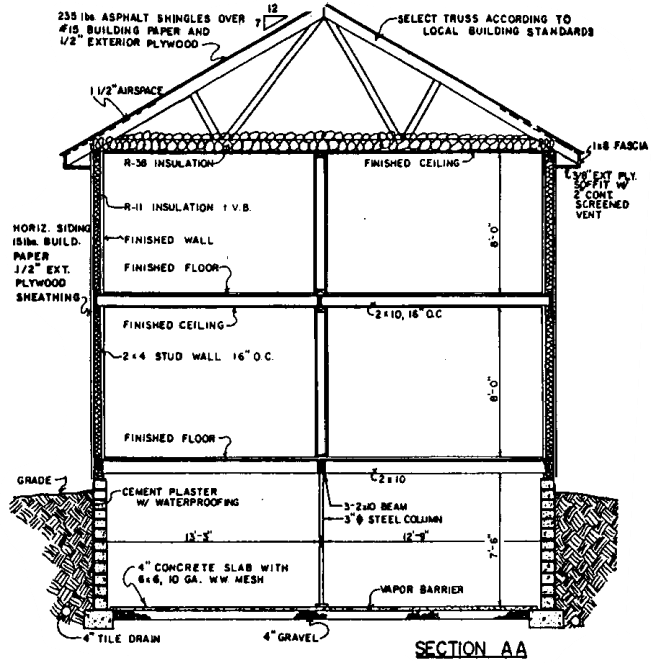 235 lbs. ASPHALT SHINGLES OVER
#15 BUILDING PAPER AND
1/2" EXTERIOR PLYWOOD
12
7
SELECT TRUSS ACCORDING TO
LOCAL BUILDING STANDARDS
1 1/2" AIRSPACE
R-38 INSULATION
FINISHED CEILING
1x8 FASCIA
3/8" EXT PLY.
SOFFIT W/
2" CONT.
SCREENED
VENT
R-11 INSULATION & V.B.
HORIZ. SIDING
15lbs. BUILD.
PAPER
1/2" EXT.
PLYWOOD
SHEATHING
FINISHED WALL
8'-0"
FINISHED FLOOR
FINISHED CEILING
2x10, 16" O.C
2x4 STUD WALL 16" O.C.
8'-0"
FINISHED FLOOR
GRADE
2x10
CEMENT PLASTER
W/ WATERPROOFING
3-2x10 BEAM
3" ϕ STEEL COLUMN
13'-3"
12'-9"
7'-6"
4" CONCRETE SLAB WITH
6x6, 10 GA. W.W MESH
VAPOR BARRIER
4" TILE DRAIN
4" GRAVEL
SECTION AA